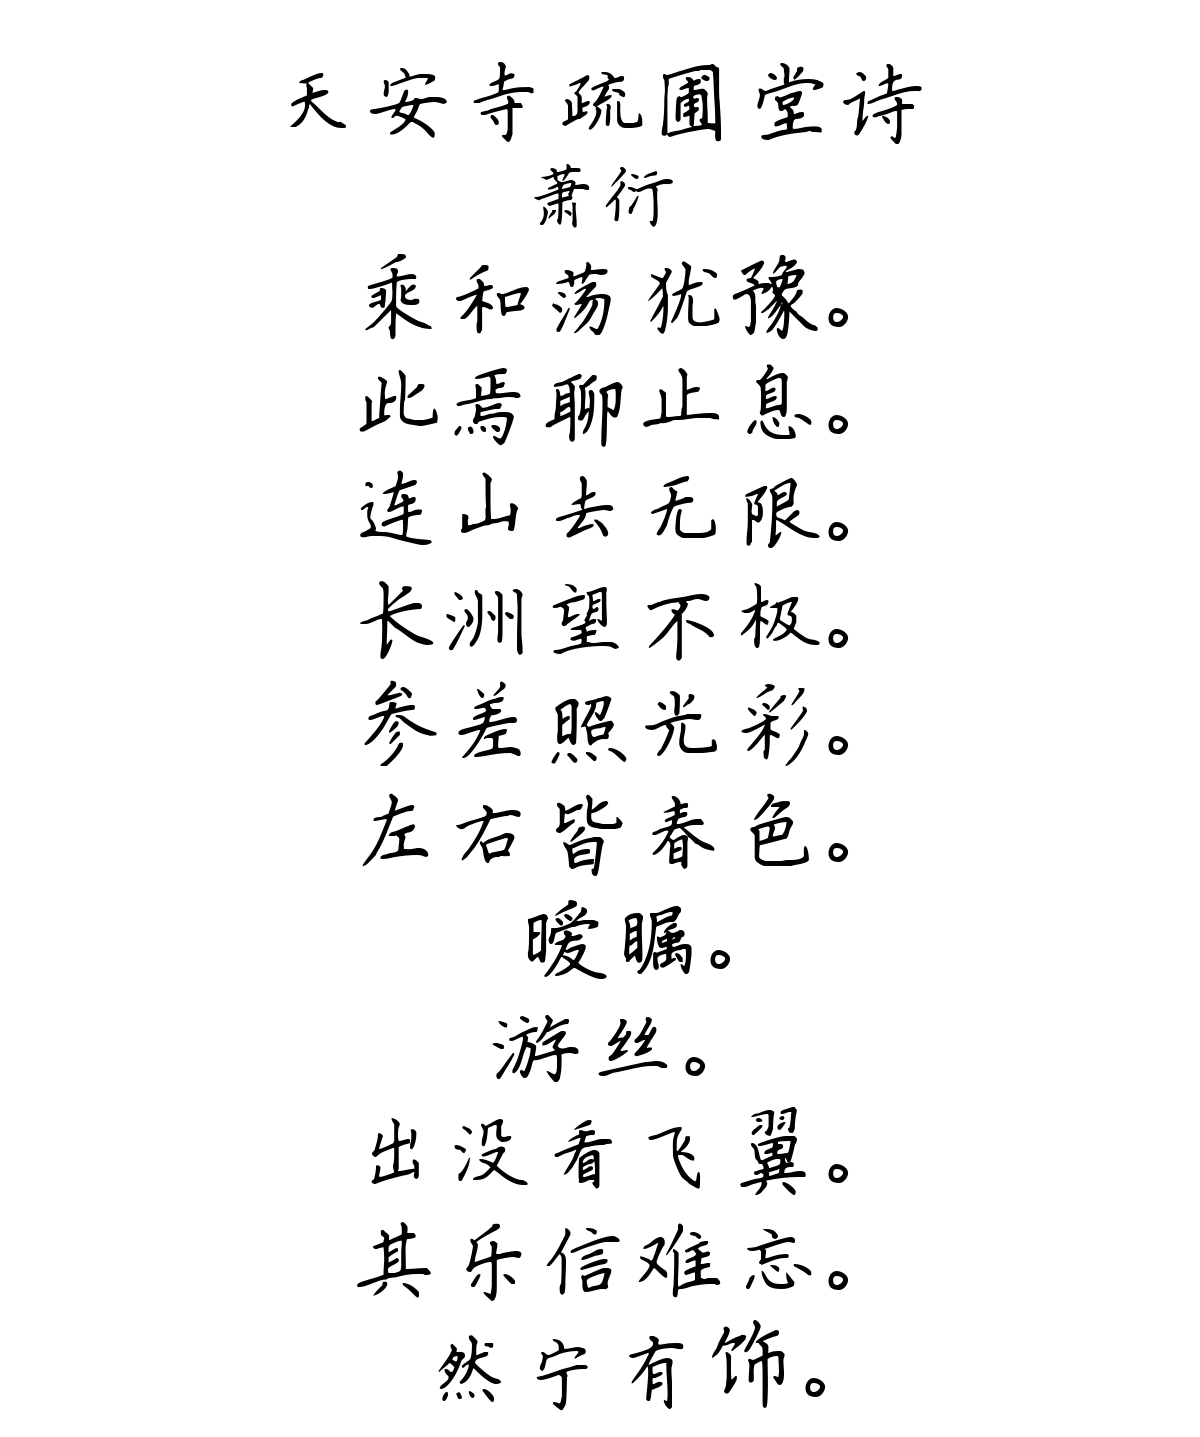 天安寺疏圃堂诗
萧衍
乘和荡犹豫。
此焉聊止息。
连山去无限。
长洲望不极。
参差照光彩。
左右皆春色。
暧瞩。
游丝。
出没看飞翼。
其乐信难忘。
然宁有饰。